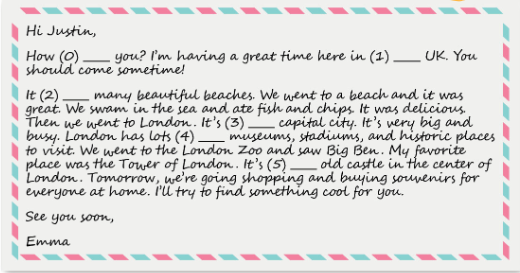 Hi Justin,
How (0) ____ you? I'm having a great time here in (1) ____ UK. You
should come sometime!
It (2) ____ many beautiful beaches. We went to a beach and it was
great. We swam in the sea and ate fish and chips. It was delicious.
Then we went to London. It's (3) ____ capital city. It's very big and
busy. London has lots (4) ____ museums, stadiums, and historic places
to visit. We went to the London Zoo and saw Big Ben. My favorite
place was the Tower of London. It's (5) ____ old castle in the center of
London. Tomorrow, we're going shopping and buying souvenirs for
everyone at home. I'll try to find something cool for you.
See you soon,
Emma